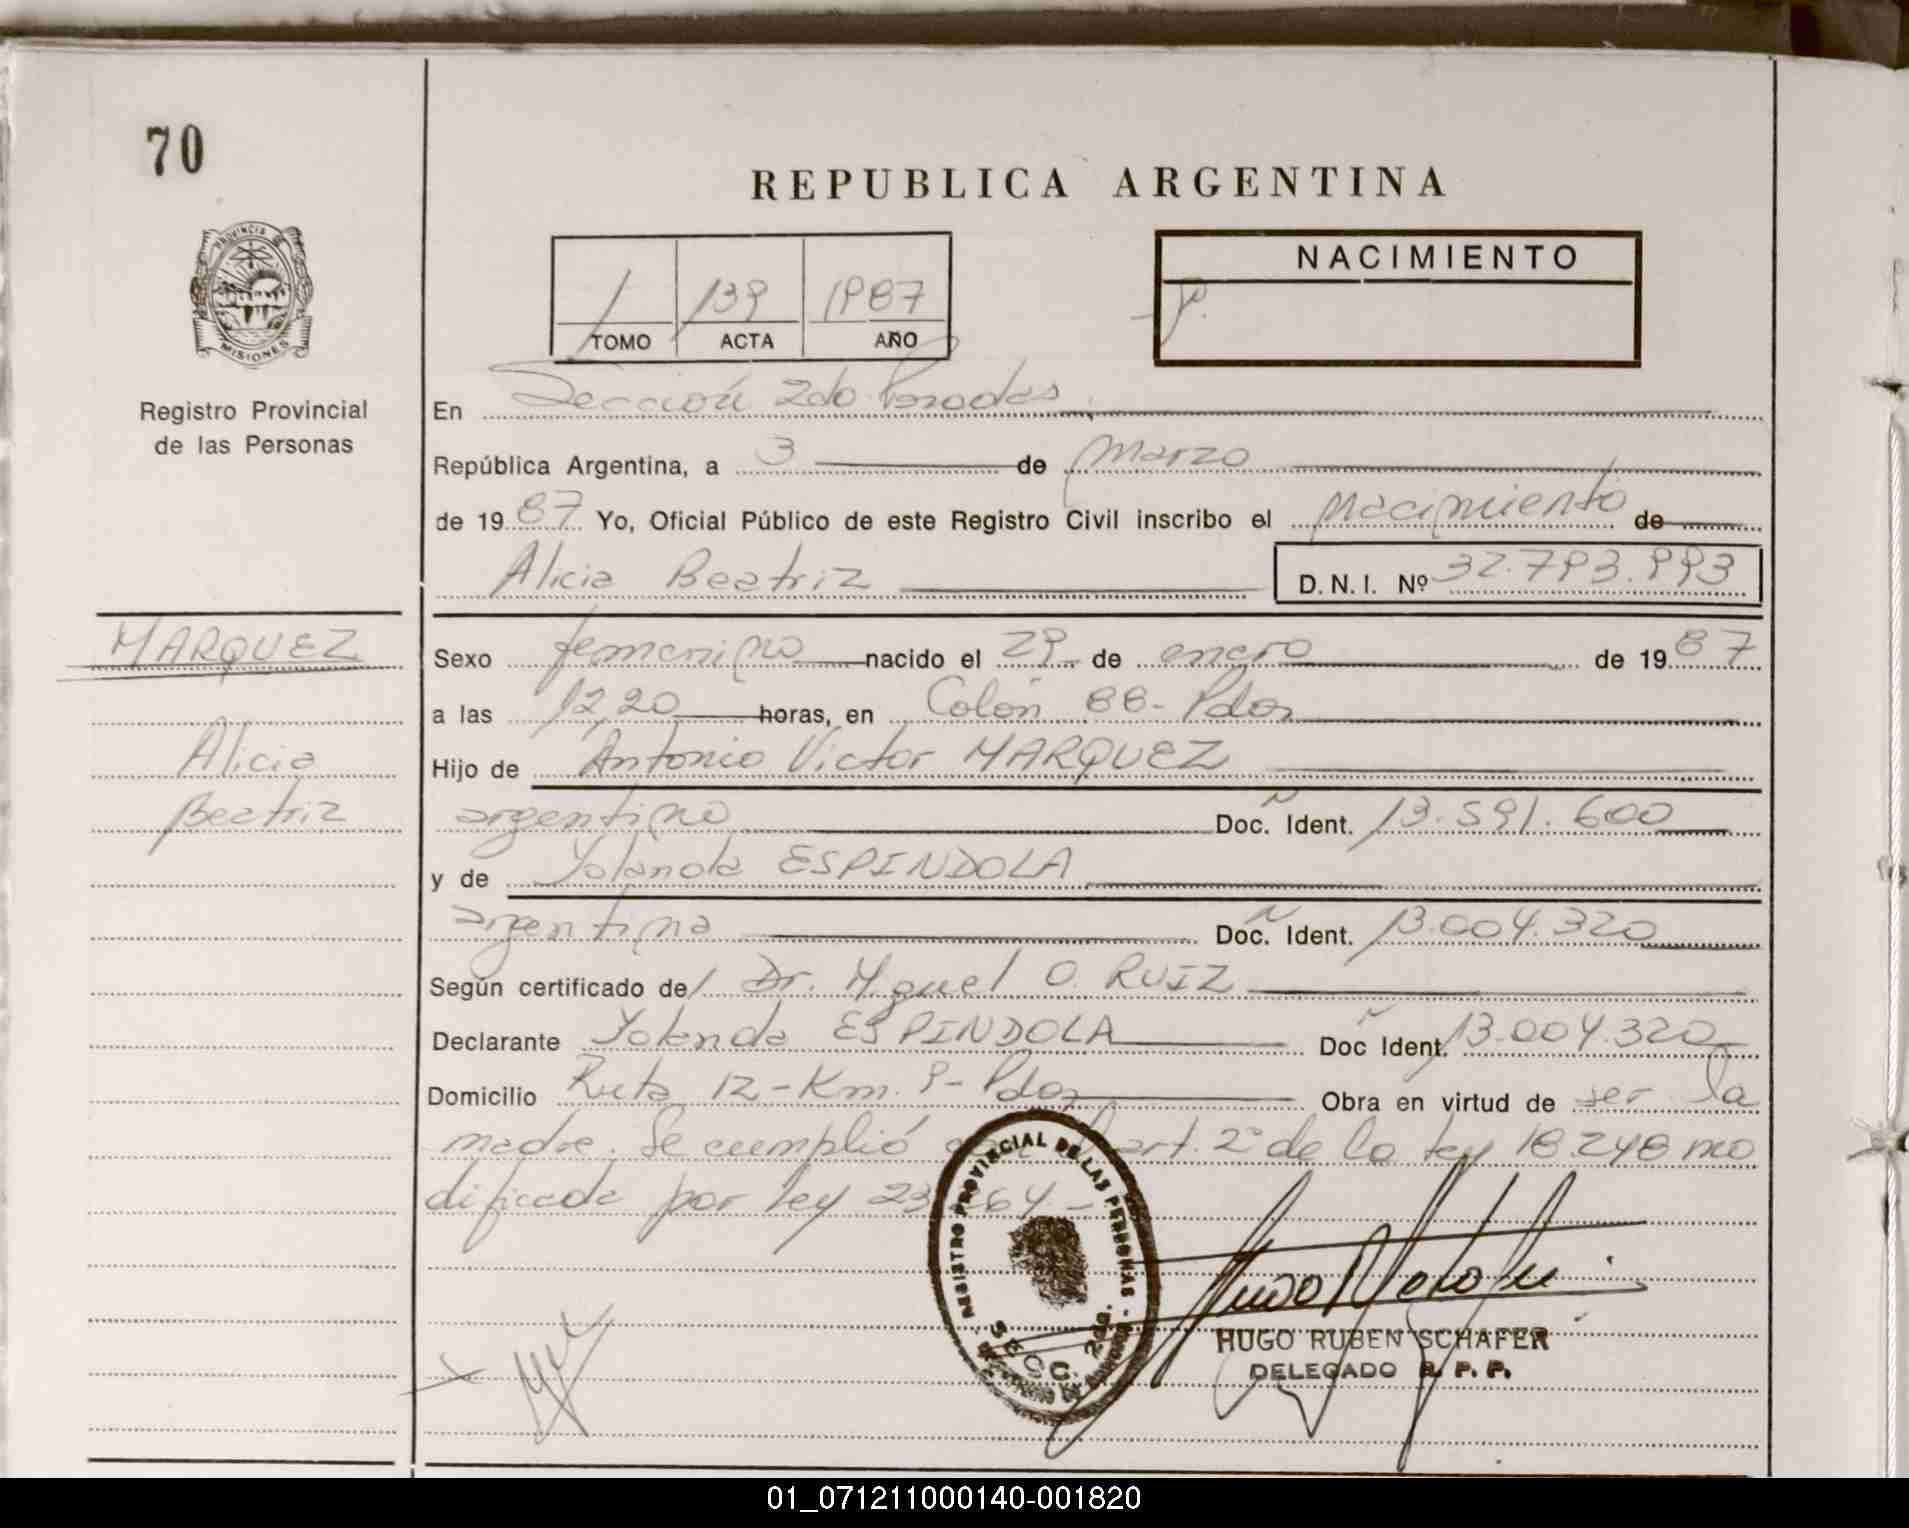 70
REPUBLICA ARGENTINA
PROVINCIA DE
MISIONES
Registro Provincial
de las Personas
1 139 1987
TOMO ACTA AÑO
NACIMIENTO
En Sección 2do Posadas
República Argentina, a 3 de Marzo
de 1987 Yo, Oficial Público de este Registro Civil inscribo el Nacimiento de
Alicia Beatriz D.N.I. Nº 32.793.993
MARQUEZ
Alicia
Beatriz
Sexo femenino nacido el 29 de enero de 1987
a las 12,20 horas, en Colón 88- Pdas
Hijo de Antonio Victor MARQUEZ
argentino Doc. Ident. 13.591.600
y de Yolanda ESPINDOLA
argentina Doc. Ident. 13.004.320
Según certificado de Dr. Miguel O. RUIZ
Declarante Yolanda ESPINDOLA Doc Ident. 13.004.320
Domicilio Ruta 12-Km. 9- Pdas Obra en virtud de ser la
madre. Se cumplió art. 2º de la ley 18.248 mo
dificada por ley 23.264-
REGISTRO PROVINCIAL DE LAS PERSONAS
SECC. 2da.
HUGO RUBEN SCHAFER
DELEGADO R. P. P.
01_071211000140-001820